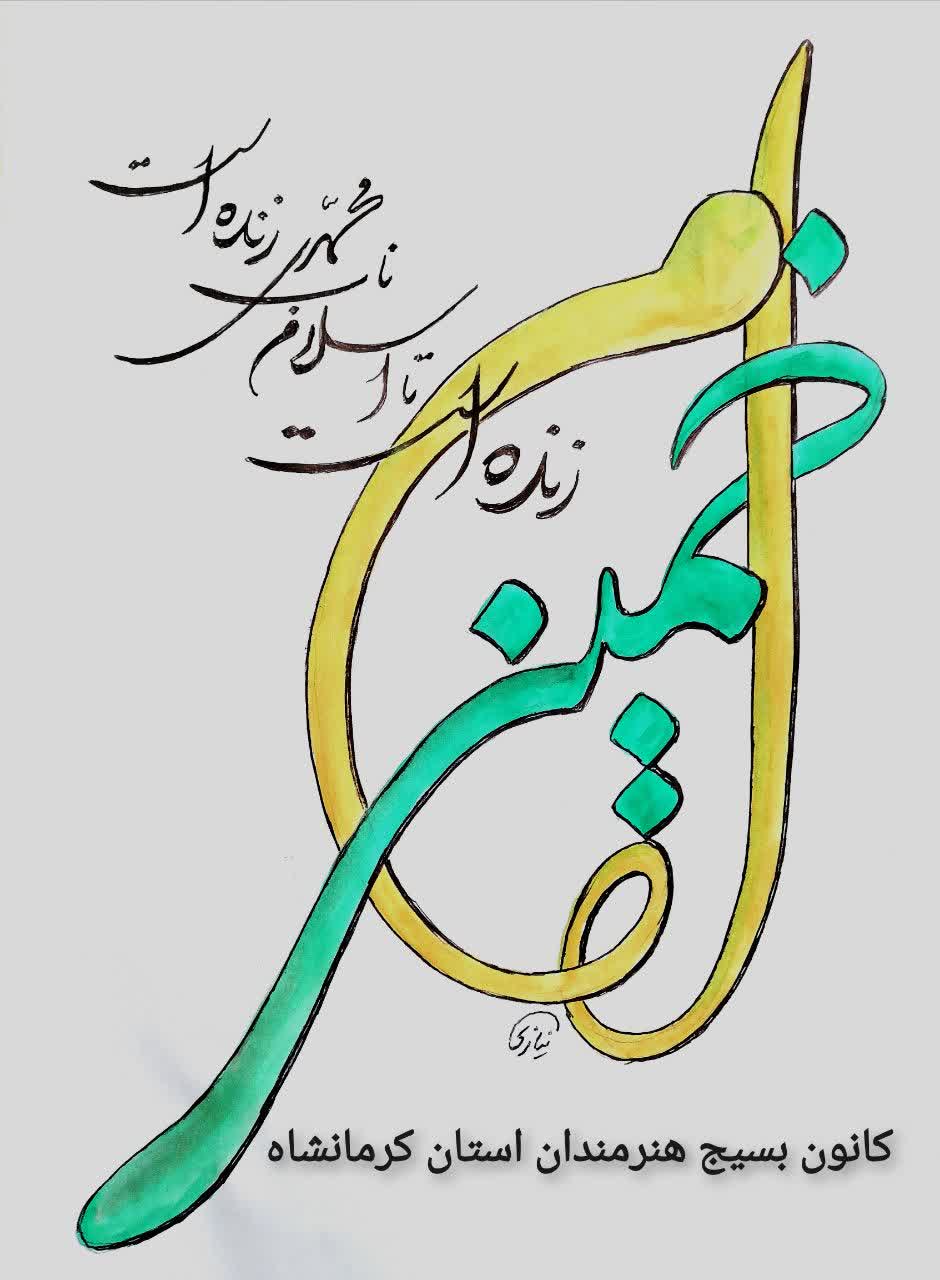 خمینی
زنده است
تا اسلام
ناب محمّدی
زنده است
نیازی
کانون بسیج هنرمندان استان کرمانشاه